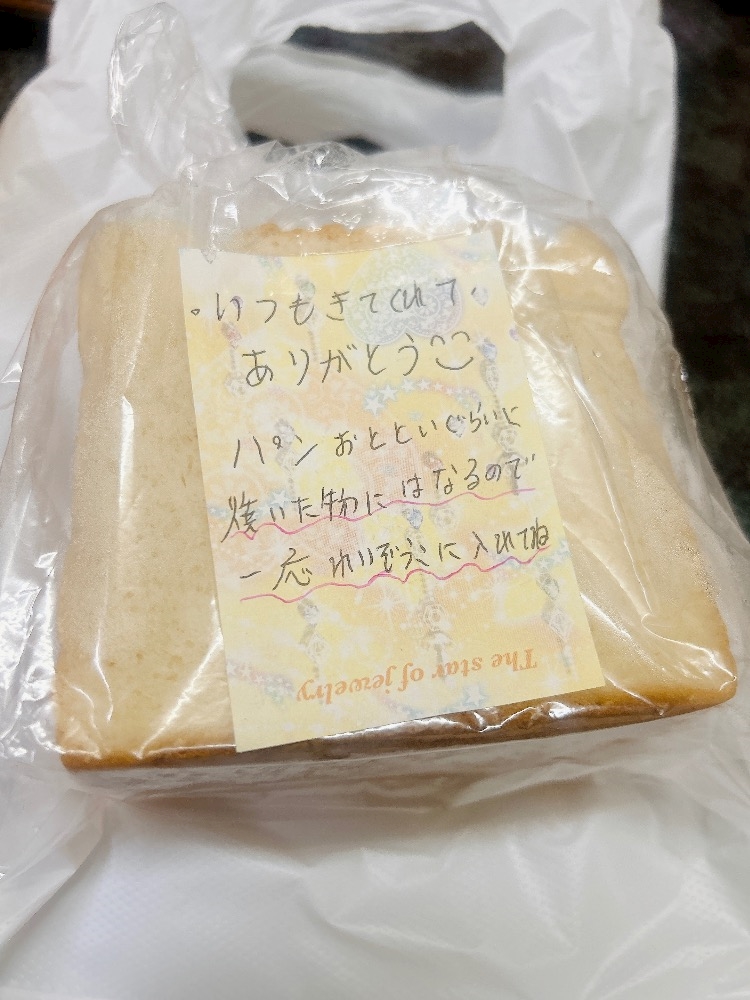 ・いつもきてくれて・
ありがとう
パン おとといぐらいに
焼いた物にはなるので
一応 れいぞうこに入れてね
The star of jewelry